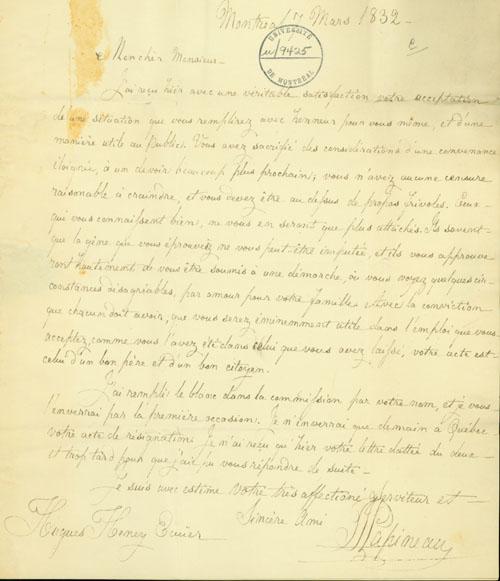 Montréal 7 Mars 1832 -
UNIVERSITÉ
u/9425
DE MONTRÉAL
Mon cher Monsieur -
J'ai reçu hier avec une véritable satisfaction votre acceptation
de une situation que vous remplirez avec honneur pour vous même, et d'une
manière utile au Public. Vous avez sacrifié des considérations d'une convenance
éloignée, à un devoir beaucoup plus prochain; vous n'avez aucune censure
raisonable à craindre, et vous devez être au dessus de propos frivoles. Ceux
qui vous connaissent bien, ne vous en seront que plus attachés. Ils savent
que la gène que vous éprouviez ne vous peut-être imputée, et ils vous approuve
ront hautement de vous être soumis à une démarche, où vous voyez quelques cir-
constances désagréables, par amour pour votre famille. Avec la conviction
que chacun doit avoir, que vous serez éminemment utile dans l'emploi que vous
acceptez, comme vous l'avez été dans celui que vous avez laissé, votre acte est
celui d'un bon père et d'un bon citoyen.
J'ai rempli le blanc dans la commission par votre nom, et je vous
l'enverrai par la première occasion. Je n'enverrai que demain à Québec
votre acte de résignation. Je n'ai reçu qu'hier votre lettre dattée du deux
et trop tard pour que j'aie pu vous répondre de suite -
Je suis avec estime Votre très affectioné Serviteur et -
Sincère Ami
Hugues Heney Ecuier
LJPapineau